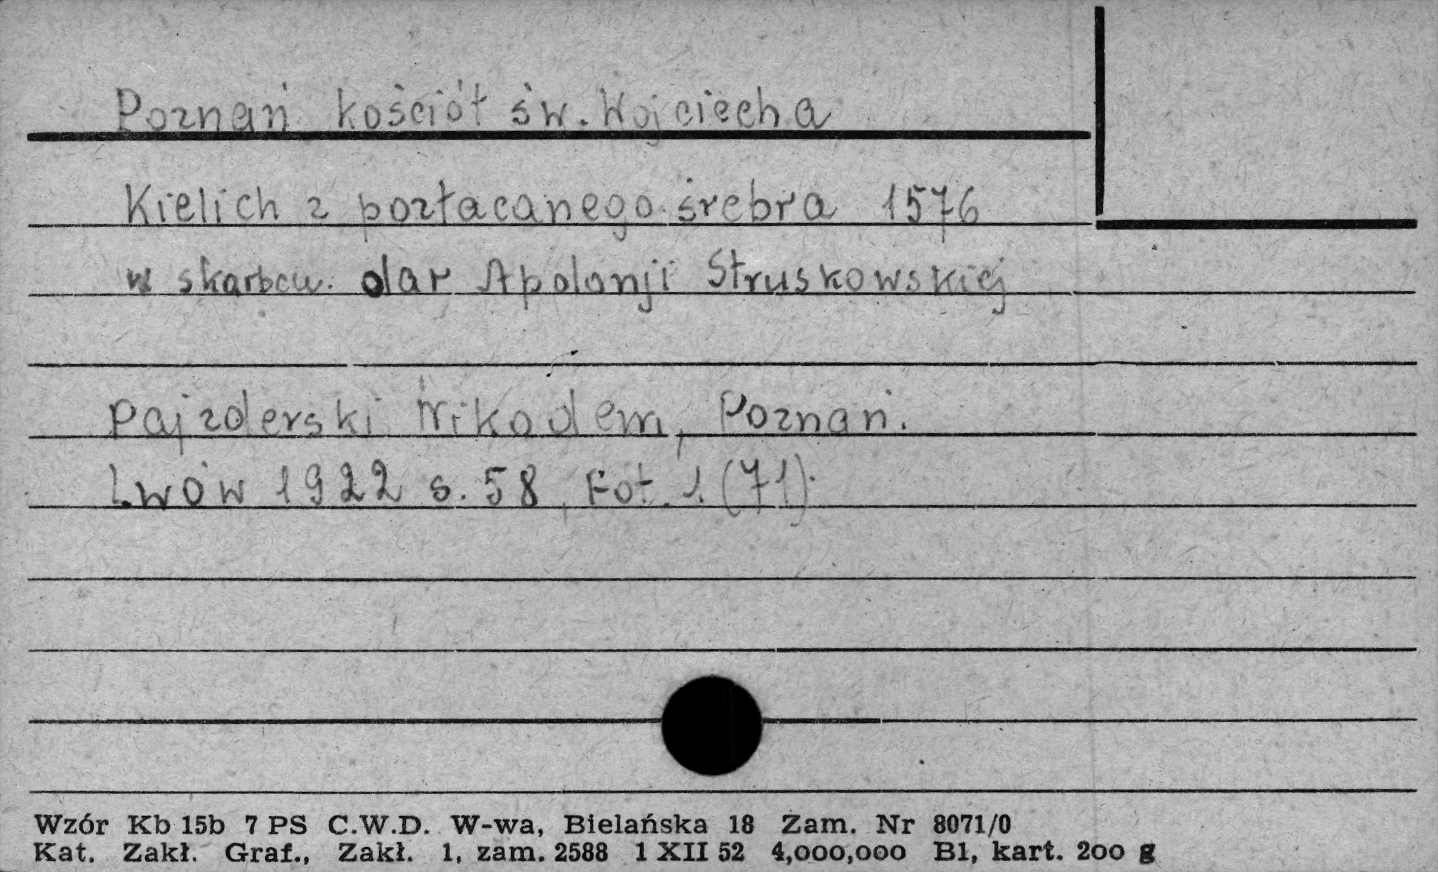 Poznań kościół św. Wojciecha
Kielich z pozłacanego srebra 1576
w skarbcu. dar Apolonji Struskowskiej
Pajzderski Nikodem, Poznań.
Lwów 1922 s. 58, Fot. 1. (71).
Wzór Kb 15b 7 PS C.W.D. W-wa, Bielańska 18 Zam. Nr 8071/0
Kat. Zakł. Graf., Zakł. 1, zam. 2588 1 XII 52 4,000,000 B1, kart. 200 g